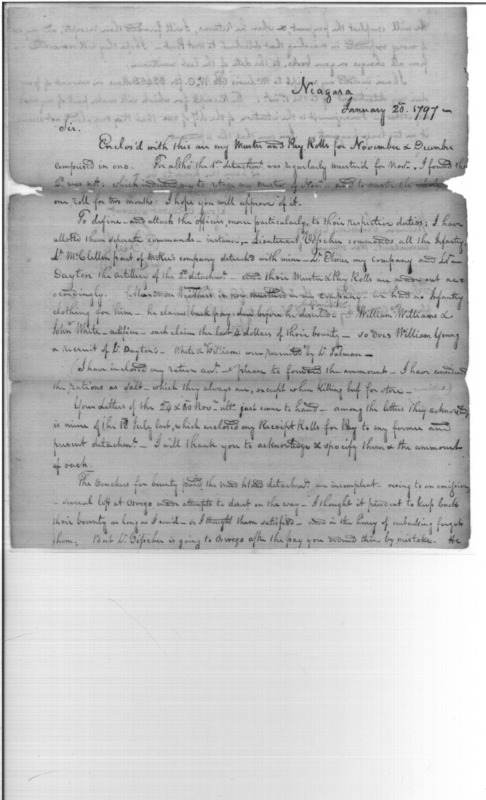 Niagara
January 20. 1797 —
Sir.
Enclos'd with this are my Muster and Pay Rolls for November & December
comprized in one. For altho the 1st detachmt was regularly mustered for Novr. I found the
2d was not; which induced me to my Muster of Novr. and to muster the
one roll for two months; I hope you will approve of it.
To define and attach the officers, more particularly, to their respective duties; I have
alloted them separate commands — Lieutenant commands all the Infantry
Lt McClellen part of McKee's company detached with mine — Lt Elmer my company and Lt
Dayton the artillery of the 2d detachmt — and their Muster & Pay Rolls are made out ac-
cordingly. is now mustered in my company — we had no Infantry
clothing for him — he claims back pay due before he deserted — William Williams &
John White claim the last 4 dollars of their bounty — so does William Young
a recruit of Lt Dayton's — White & Williams were recruited by Lt
I have included my ration acct. please to forward the ammount — I have considered
the rations as salt — which they always are, except when killing beef for store —
Your letters of the 24 & 30 Novr ulto. just come to hand — among the letters they acknowledge
is mine of the July last, which enclosed my Receipt Rolls for Pay to my former and
present detachmt — I will thank you to acknowledge & specify them & the ammount
of each.
The vouchers for bounty paid the detachmt are incompleat — owing to an omission
several left at Oswego and attempts to desert on the way — I thought it prudent to keep back
their bounty as long as I could — or I thought them satisfied — and in the hurry of embarking forgot
them, But Lt is going to Oswego after the pay you by mistake. He